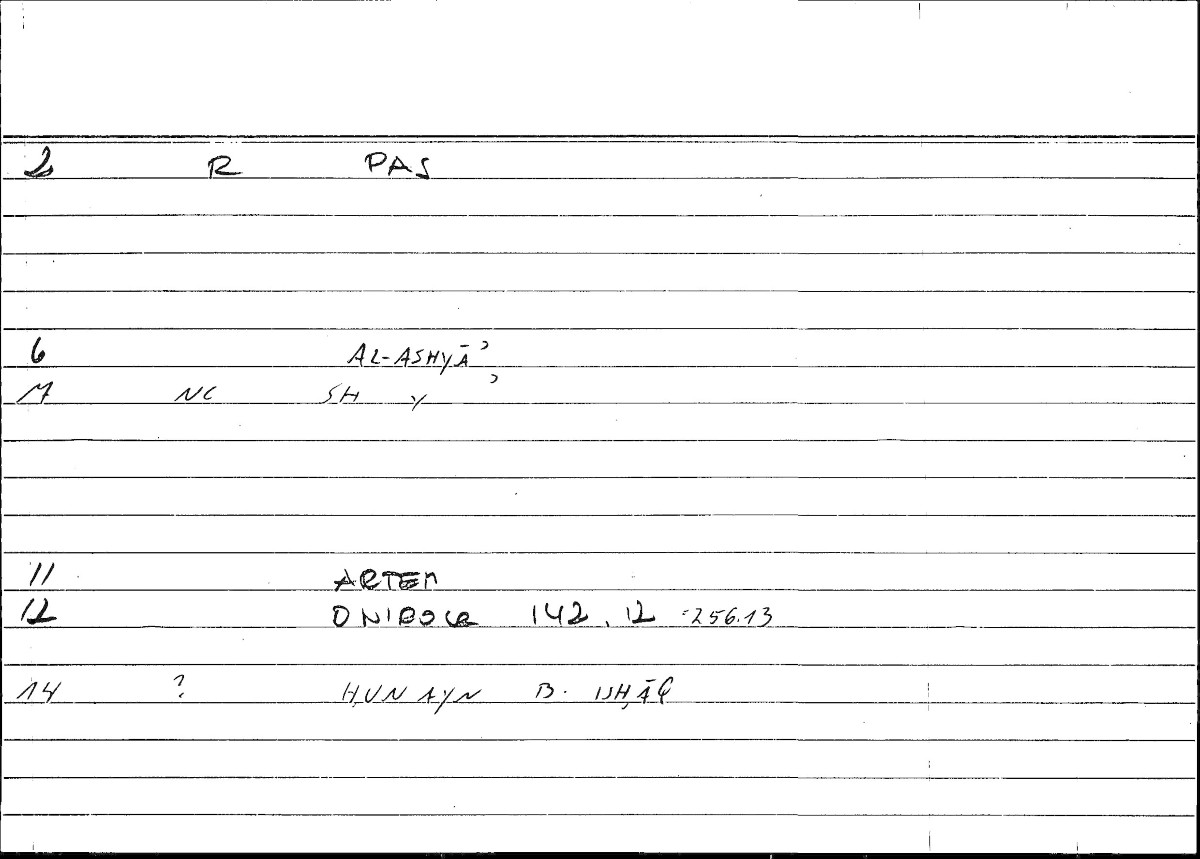 2 R PAS
6 AL-ASHYĀʾ
7 NC SH Y ʾ
11 ARTEM
12 ONIROCR 142.12 =256.13
14 ? ḤUNAYN B. ISḤĀQ